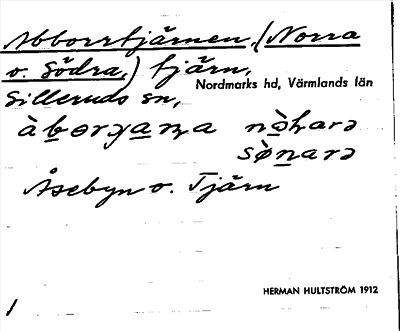 Abborrtjärnen, (Norra
o. Södra,) tjärn,
Nordmarks hd, Värmlands län
Silleruds sn,
Åsebyn o. Tjärn
HERMAN HULTSTRÖM 1912
1